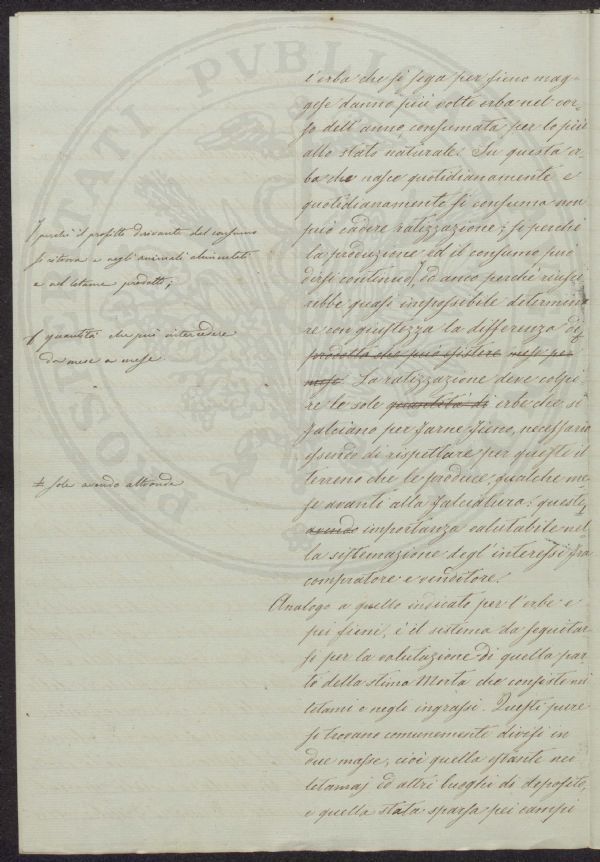 l'erba che si sega per fieno mag-
gese danno più volte erba nel cor-
so dell'anno consumata per lo più
allo stato naturale. Su questa er-
ba che nasce quotidianamente e
quotidianamente si consuma non
può cadere ratizzazione; si perché
la produzione ed il consumo può
dirsi continuo, ed anco perché riusci-
rebbe quasi impossibile determina
re con giustezza la differenza di
prodotto che può esistere mese per
mese. La ratizzazione deve colpi
re le sole quantità di erbe che si
falciano per farne fieno, necessario
essendo di rispettare per queste il
terreno che le produce, qualche me-
se avanti alla falciatura: queste
avendo importanza valutabile nel-
la sistemazione degl'interessi fra
compratore e venditore.
Analogo a quello indicato per l'erbe e
pei fieni, è il sistema da seguitar-
si per la valutazione di quella par-
te della stima Morta che consiste nei
letami e negli ingrassi. Questi pure
si trovano comunemente divisi in
due masse, cioè quella esistente nei
letamaj ed altri luoghi di deposito,
e quella stata sparsa pei campi
perché il profitto derivante dal consumo
si ritrova e negli animali alimentati
e nel letame prodotto;
quantità che può intercedere
da mese a mese
≠ sole avendo altronde
PROSPERITATI PVBLICAE